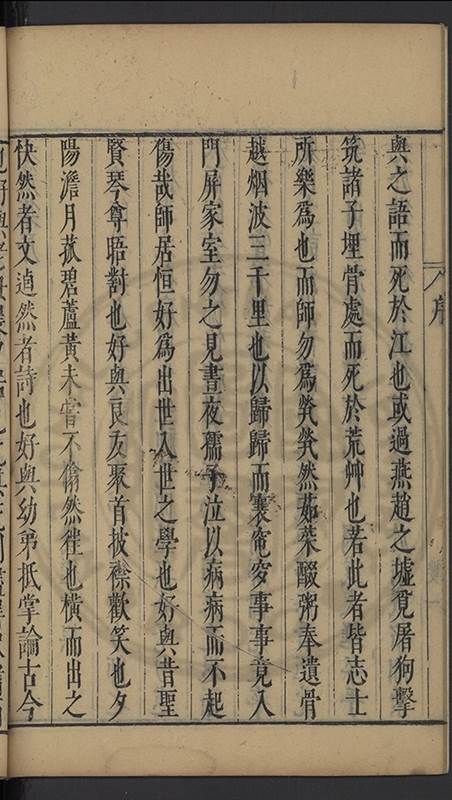 序
與之語而死於江也或過燕趙之墟覓屠狗擊
筑諸子埋骨處而死於荒艸也若此者皆志士
所樂為也而師勿為煢煢然茹菜醊粥奉遺骨
越烟波三千里也以歸歸而襄窀穸事事竟入
門屏家室勿之見晝夜孺子泣以病病而不起
傷哉師居恒好為出世入世之學也好與昔聖
賢琴尊晤對也好與良友聚首披襟歡笑也夕
陽澹月荻碧蘆黃未嘗不翛然徃也橫而出之
快然者文逌然者詩也好與幼弟抵掌論古今